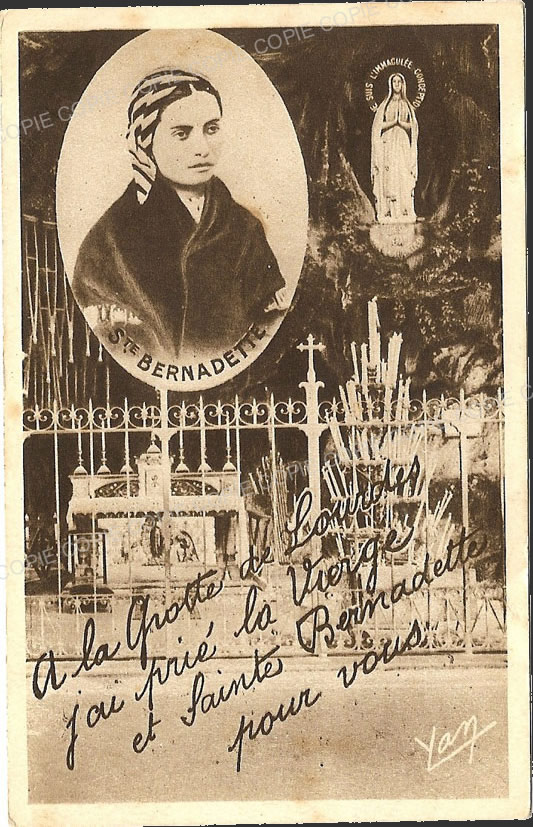 COPIE COPIE COPIE COPIE
JE SUIS L'IMMACULÉE CONCEPTION
STE BERNADETTE
A la Grotte de Lourdes
j'ai prié la Vierge
et Sainte Bernadette
pour vous
Yan